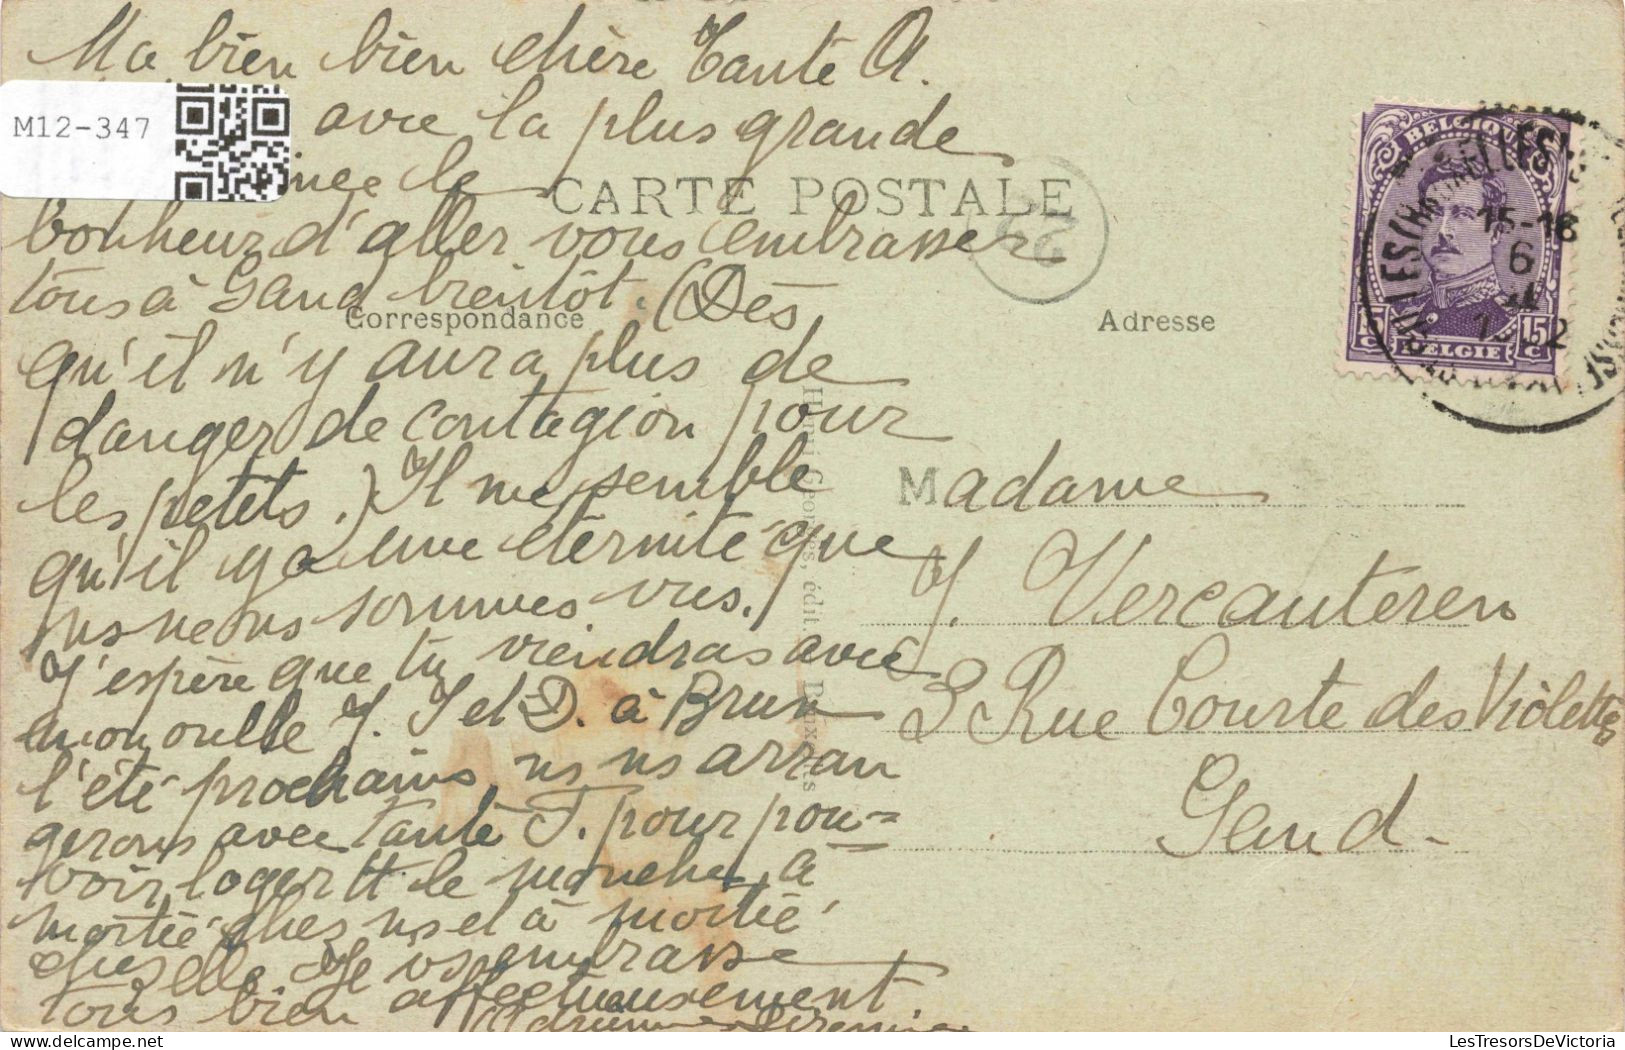 Ma bien bien chère Tante A.
M12-347
avec la plus grande
le
CARTE POSTALE
bonheur d'aller vous embrasser
tous à Gand bientôt. (Dès
Correspondance
qu'il n'y aura plus de
danger de contagion pour
les petits.) Il me semble
qu'il y a une éternité que
ns ne ns sommes vus.
J'espère que tu viendras avec
mon J. J et D. à Brux
l'été prochain, ns ns arran
gerons avec Tante J. pour pou=
voir loger tt le monde, à
moitié chez ns et à moitié
chez elle. Je vs embrasse
tous bien affectueusement.
Henri Georges, édit. Bruxelles
Adresse
BELGIQUE
15-16
6
15 C
BELGIE
15 C
Madame
J. Vercauteren
3 Rue Courte des Violettes
Gand-
LesTresorsDeVictoria